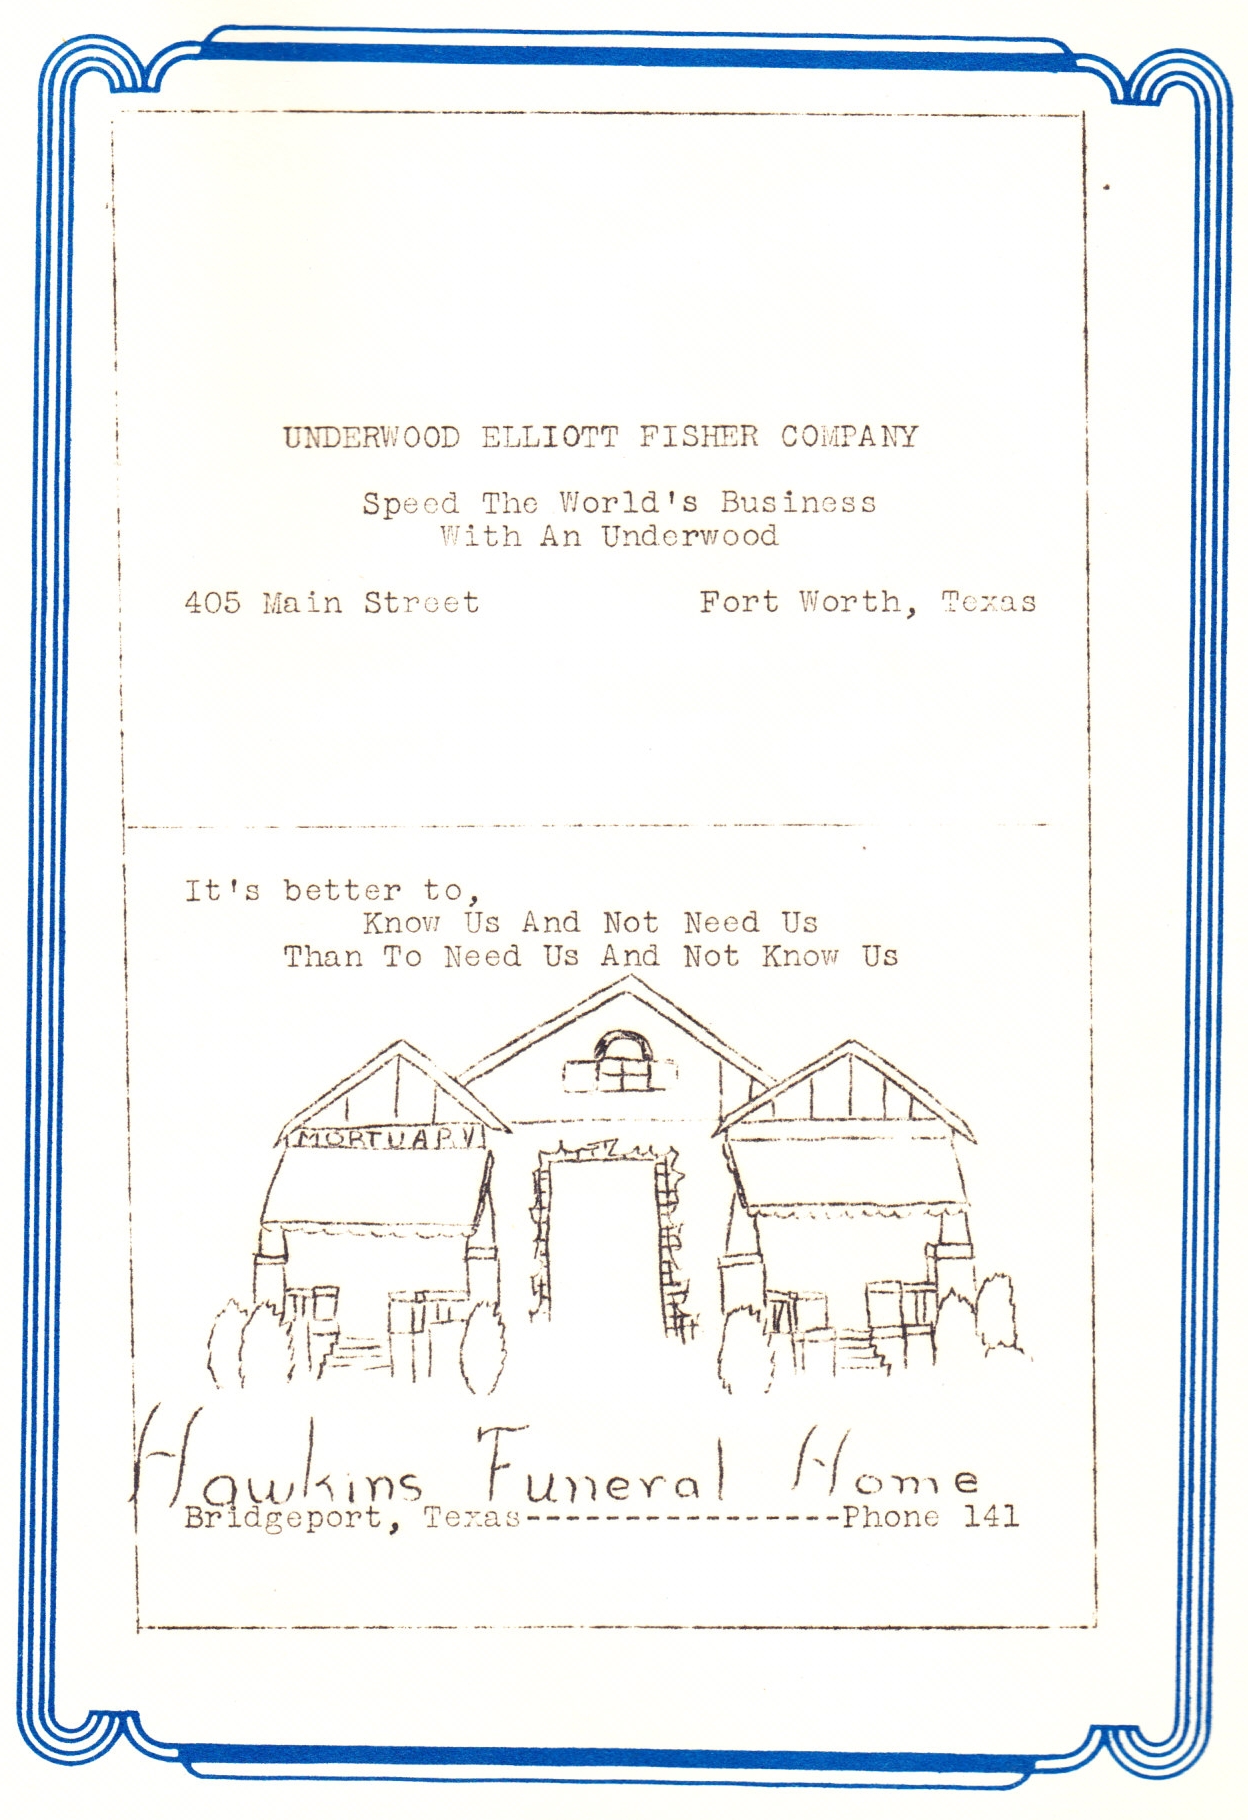 UNDERWOOD ELLIOTT FISHER COMPANY
Speed The World's Business
With An Underwood
405 Main Street Fort Worth, Texas
It's better to,
Know Us And Not Need Us
Than To Need Us And Not Know Us
MORTUARY
Hawkins Funeral Home
Bridgeport, Texas----------------Phone 141